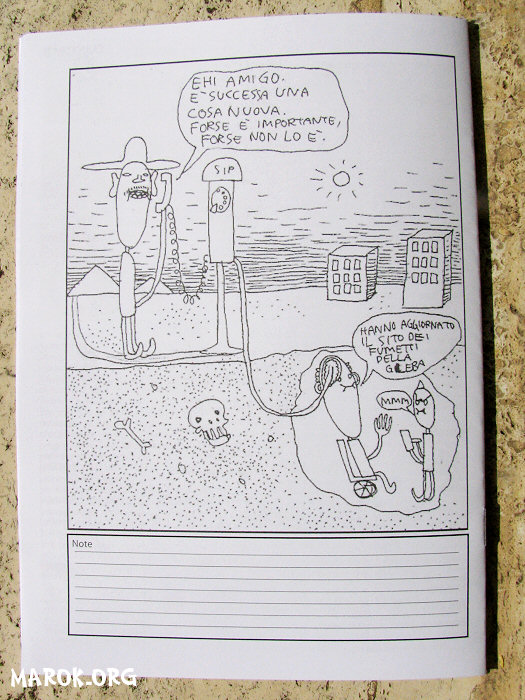 EHI AMIGO.
È SUCCESSA UNA
COSA NUOVA.
FORSE È IMPORTANTE,
FORSE NON LO È.
SIP
HANNO AGGIORNATO
IL SITO DEI
FUMETTI
DELLA
GLEBA
MMM
Note
MAROK.ORG